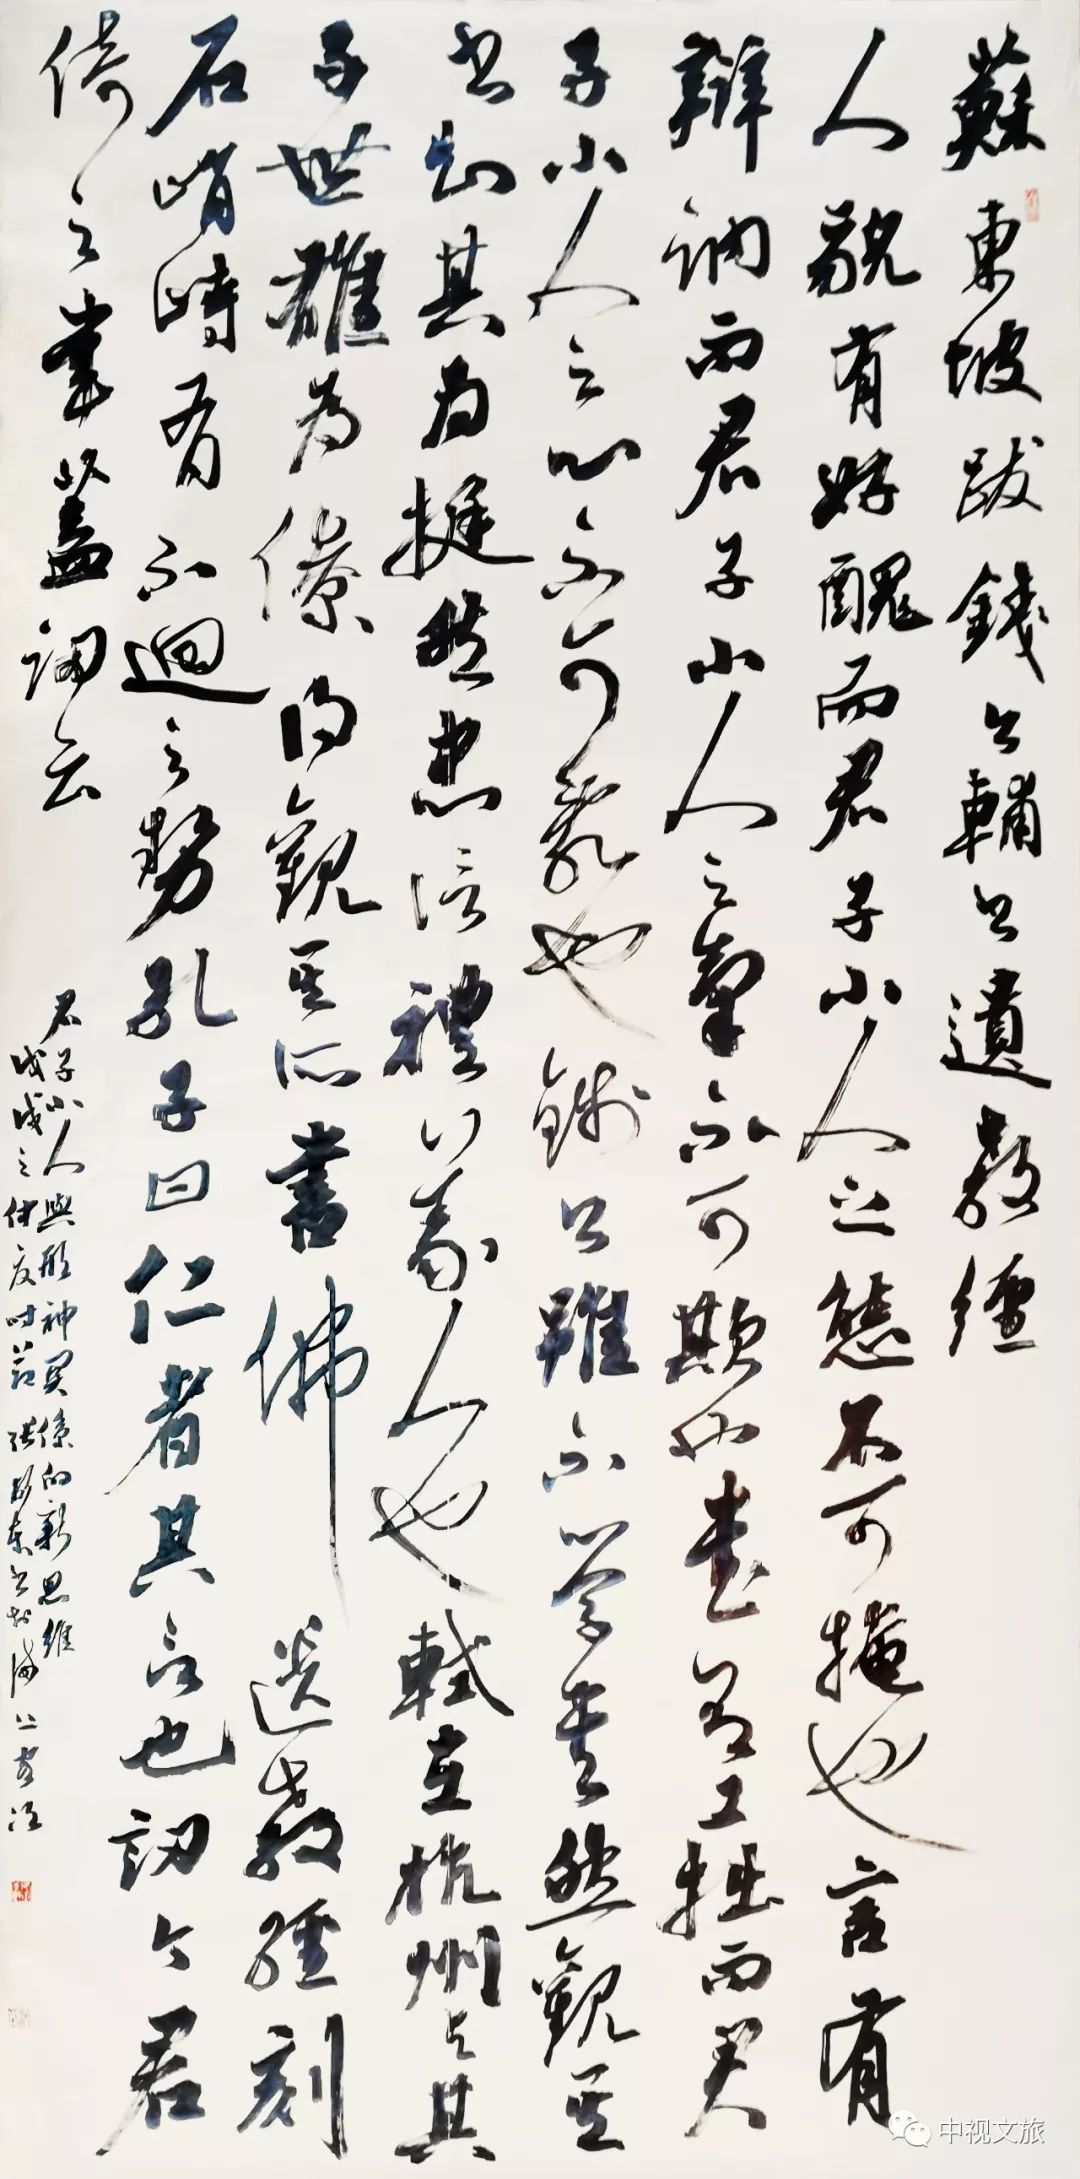 蘇東坡跋錢公輔書遺教經
人貌有好醜而君子小人之態不可掩也言有
辯訥而君子小人之氣不可欺也書有工拙而君
子小人之心不可亂也錢公雖不以學書然觀其
書知其為挺然忠信禮義人也軾在杭州與其
子世雄為僚得觀其所書佛遺教經刻
石峭峙有不迴之勢孔子曰仁者其言也訒今君
倚之筆蓋訒云
君子小人與形神關係的新思維
戊戌之仲夏時節張東書於海上
中视文旅